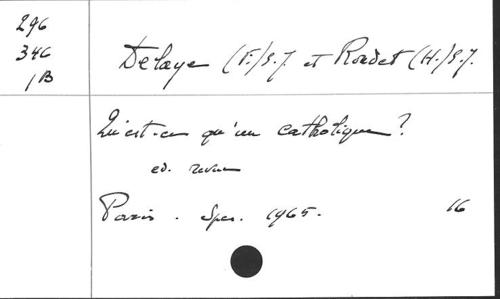 296
346
1B
Delaye (E.) S.J. et Rondet (H.) S.J.
Qu'est-ce qu'un catholique?
ed. revue
Paris. Spes. 1965. 16